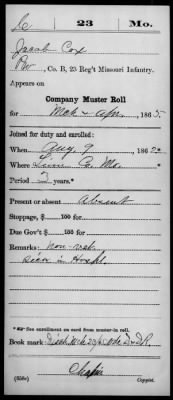 C 23 Mo.
Jacob Cox
Pvt, Co. B, 23 Reg't Missouri Infantry.
Appears on
Company Muster Roll
for Mch & Apr, 1865.
Joined for duty and enrolled:
When Aug 9, 1862
Where Linn Co. Mo.
Period 3 years.*
Present or absent Absent
Stoppage, $ 100 for
Due Gov't $ 100 for
Remarks: non-vet.
Sick in Hospl.
*See enrollment on card from muster-in roll.
Book mark:
(358c) Copyist.